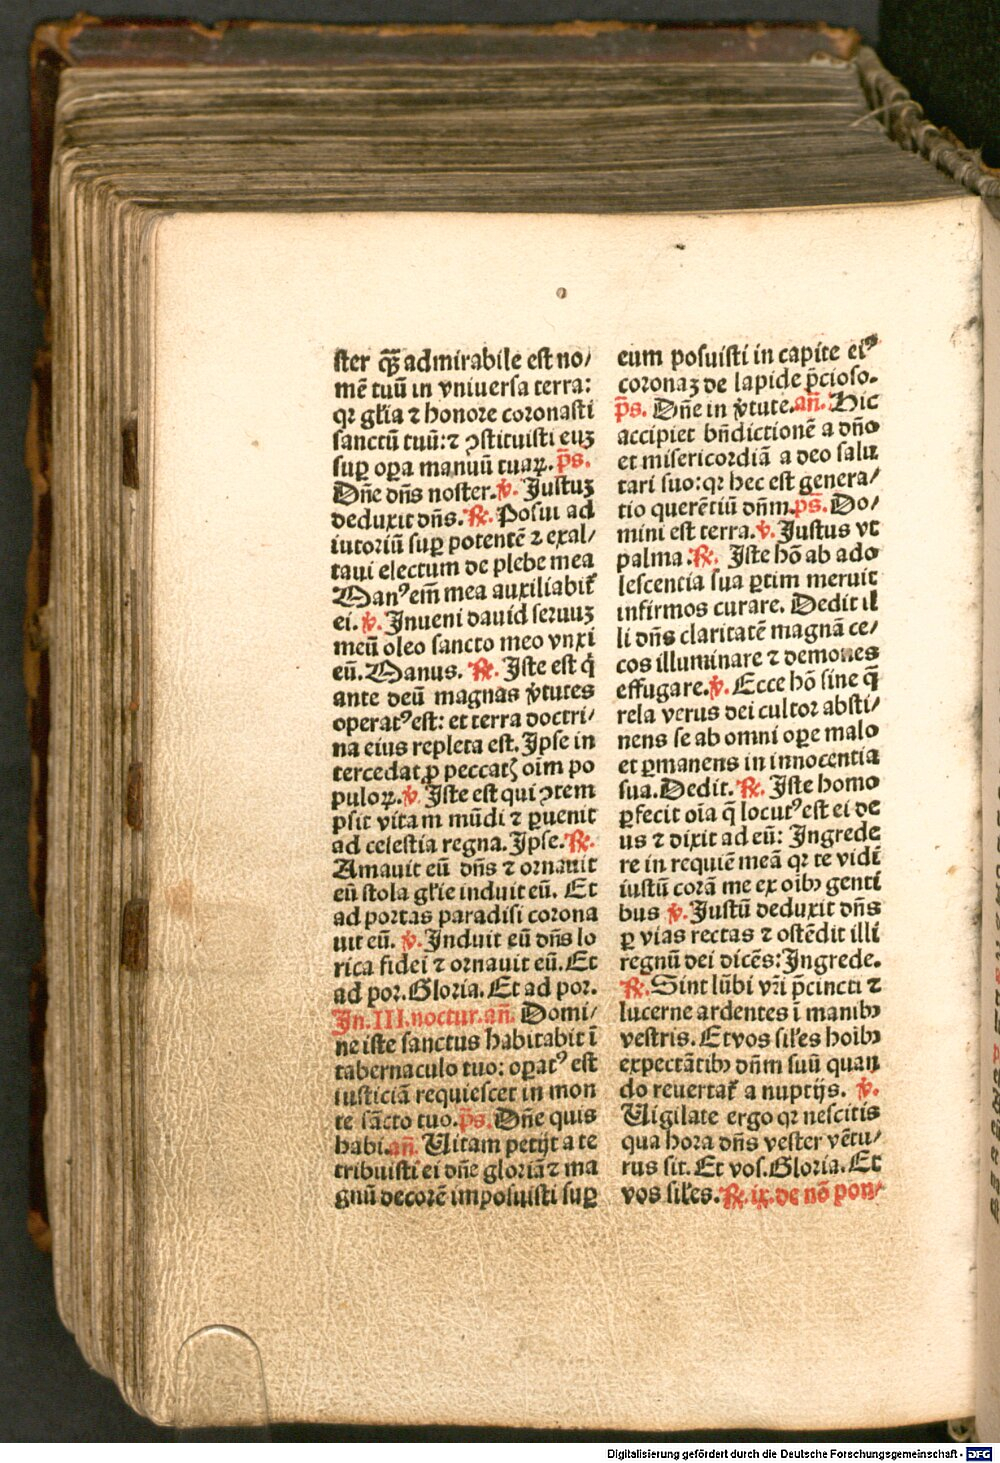 ster qȝ admirabile est no/
mē tuū in vniuersa terra:
qꝛ gl̄ia ⁊ honore coronasti
sanctū tuū:⁊ ꝯstituisti euꝫ
suꝑ oꝑa manuū tuaꝝ. p̄s.
Dn̄e dn̄s noster. v̷. Justuꝫ
deduxit dn̄s. ℟. Posui ad
iutoriū suꝑ potentē ⁊ exal/
taui electum de plebe mea
Manꝰ eīm mea auxiliabit᷑
ei. v̷. Inueni dauid seruuꝫ
meū oleo sancto meo vnxi
eū. Manus. ℟. Iste est q́
ante deū magnas v̷tutes
operatꝰ est: et terra doctri/
na eius repleta est. Ipse in
tercedat ꝓ peccatꝭ oīm po
puloꝝ. v̷. Iste est qui ꝯtem
psit vitam mūdi ⁊ ꝑuenit
ad celestia regna. Ipse. ℟.
Amauit eū dn̄s ⁊ ornauit
eū stola gl̄ie induit eū. Et
ad portas paradisi corona
uit eū. v̷. Induit eū dn̄s lo
rica fidei ⁊ ornauit eū. Et
ad por. Gloria. Et ad por.
In. III. noctur. an̄. Domi/
ne iste sanctus habitabit ī
tabernaculo tuo: oꝑatꝰ est
iusticiā requiescet in mon
te sācto tuo. p̄s. Dn̄e quis
habi. an̄. Uitam petijt a te
tribuisti ei dn̄e gloriā ⁊ ma
gnū decorē imposuisti suꝑ
eum posuisti in capite eiꝰ
coronaꝫ de lapide p̄cioso.
p̄s. Dn̄e in v̷tute. an̄. Hic
accipiet bn̄dictionē a dn̄o
et misericordiā a deo salu
tari suo: qꝛ hec est genera/
tio querētiū dn̄m. p̄s. Do/
mini est terra. v̷. Justus vt
palma. ℟. Iste hō ab ado
lescentia sua ꝑtim meruit
infirmos curare. Dedit il
li dn̄s claritatē magnā ce/
cos illuminare ⁊ demones
effugare. v̷. Ecce hō sine q̄
rela verus dei cultor absti/
nens se ab omni oꝑe malo
et ꝑmanens in innocentia
sua. Dedit. ℟. Iste homo
ꝑfecit oīa q̄ locutꝰ est ei de
us ⁊ dixit ad eū: Ingrede
re in requiē meā qꝛ te vidī
iustū corā me ex oibꝫ genti
bus v̷. Justū deduxit dn̄s
ꝑ vias rectas ⁊ ostēdit illi
regnū dei dicēs: Ingrede.
℟. Sint lūbi vr̄i p̄cincti ⁊
lucerne ardentes ī manibꝫ
vestris. Et vos sil̄es hoībꝫ
expectātibꝫ dn̄m suū quan
do reuertat᷑ a nuptijs. v̷.
Uigilate ergo qꝛ nescitis
qua hora dn̄s vester vētu/
rus sit. Et vos. Gloria. Et
vos sil̄es. ℟. ix. de nō pon/
Digitalisierung gefördert durch die Deutsche Forschungsgemeinschaft - DFG